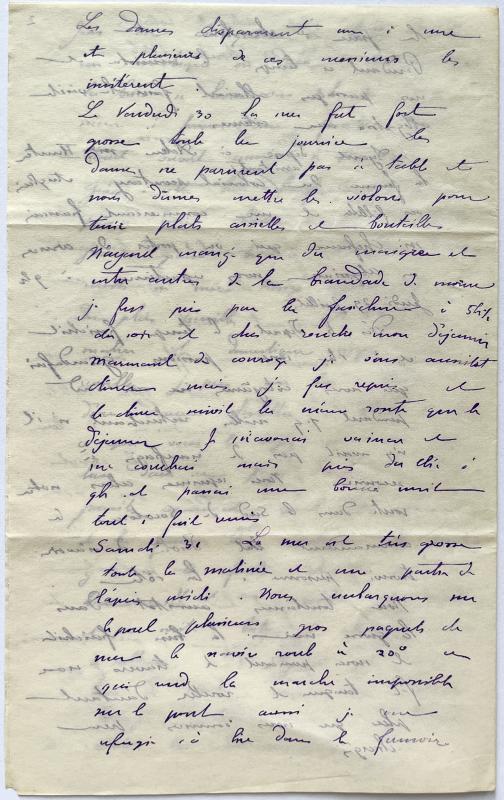 Les Dames disparurent une à une
et plusieurs de ces messieurs les
imitèrent.
Le Vendredi 30 la mer fut fort
grosse toute la journée les
dames ne parurent pas à table et
nous dûmes mettre les violons pour
tenir plats assiettes et bouteilles
N'ayant mangé que du maigre et
entre autres de la brandade de morue
je fus pris par la à 5h½
du soir et dus rendre mon déjeuner
m'armant de courage j'essayai aussitôt
dîner mais je fus repris et
le dîner suivit la même route que le
déjeuner Je vraiment et
me couchai mais pris du thé à
9h et passai une bonne nuit
tout à fait remis
Samedi 31 La mer est très grosse
toute la matinée et une partie de
l'après midi. Nous embarquons sur
le pont plusieurs gros paquets de
mer le navire roule à 20° ce
qui rend la marche impossible
sur le pont aussi je me
réfugie à lire dans le fumoir